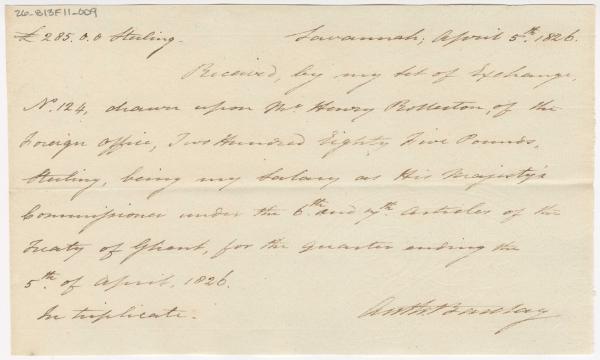 26-B13F11-009
£ 285.0.0 Sterling. Savannah; April 5th. 1826.
Received, by my set of Exchange,
No. 124, drawn upon Mr Henry Rolleston, of the
Foreign Office, Two Hundred Eighty Five Pounds,
Sterling, being my Salary as His Majesty's
Commissioner under the 6th. and 7th. Articles of the
Treaty of Ghent, for the quarter ending the
5th. of April, 1826.
In triplicate. Anth. Barclay